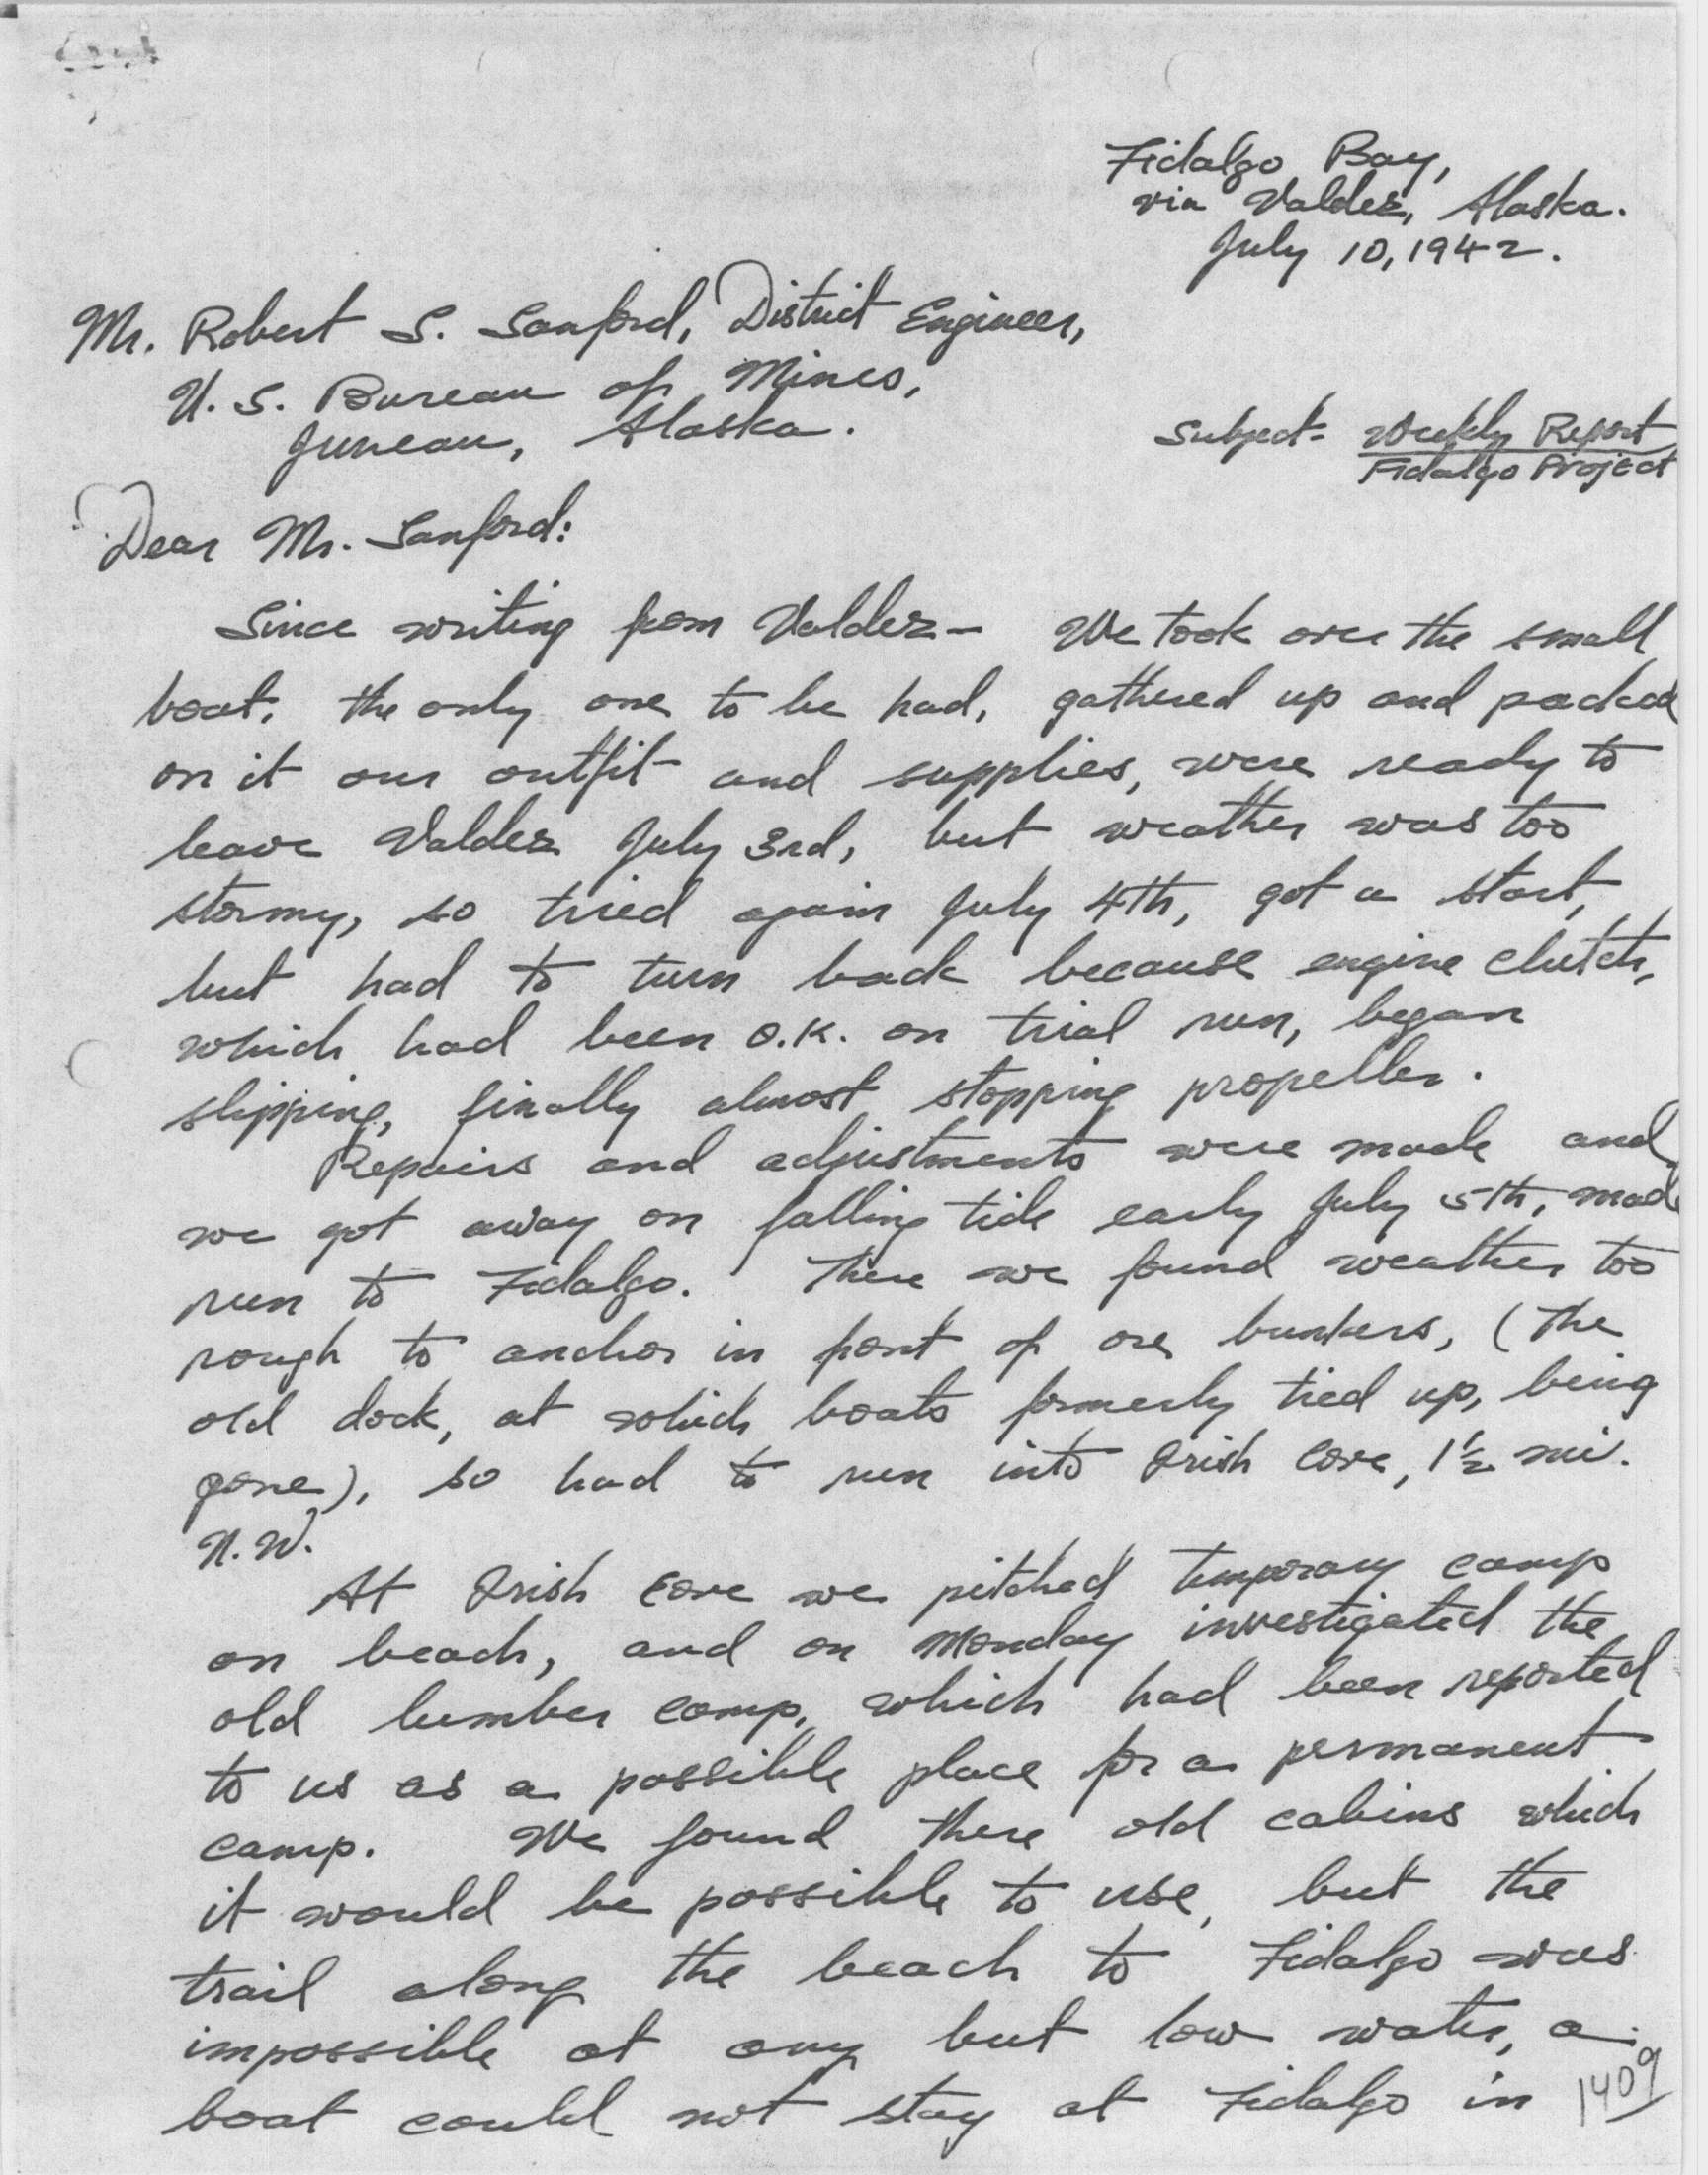 Fidalgo Bay,
via Valdez, Alaska.
July 10, 1942.
Mr. Robert S. Sanford, District Engineer,
U. S. Bureau of Mines,
Juneau, Alaska.
Subject- Weekly Report
Fidalgo Project
Dear Mr. Sanford:
Since writing from Valdez- We took over the small
boat, the only one to be had, gathered up and packed
on it our outfit and supplies, were ready to
leave Valdez July 3rd, but weather was too
stormy, so tried again July 4th, got a start,
but had to turn back because engine clutch,
which had been O.K. on trial run, began
slipping, finally almost stopping propeller.
Repairs and adjustments were made and
we got away on falling tide early July 5th, made
run to Fidalgo. There we found weather too
rough to anchor in front of ore bunkers, (the
old dock, at which boats formerly tied up, being
gone), so had to run into Irish Cove, 1½ mi.
N.W.
At Irish Cove we pitched temporary camp
on beach, and on Monday investigated the
old lumber camp, which had been reported
to us as a possible place for a permanent
camp. We found there old cabins which
it would be possible to use, but the
trail along the beach to Fidalgo was
impossible at any but low water, a
boat could not stay at Fidalgo in
1409